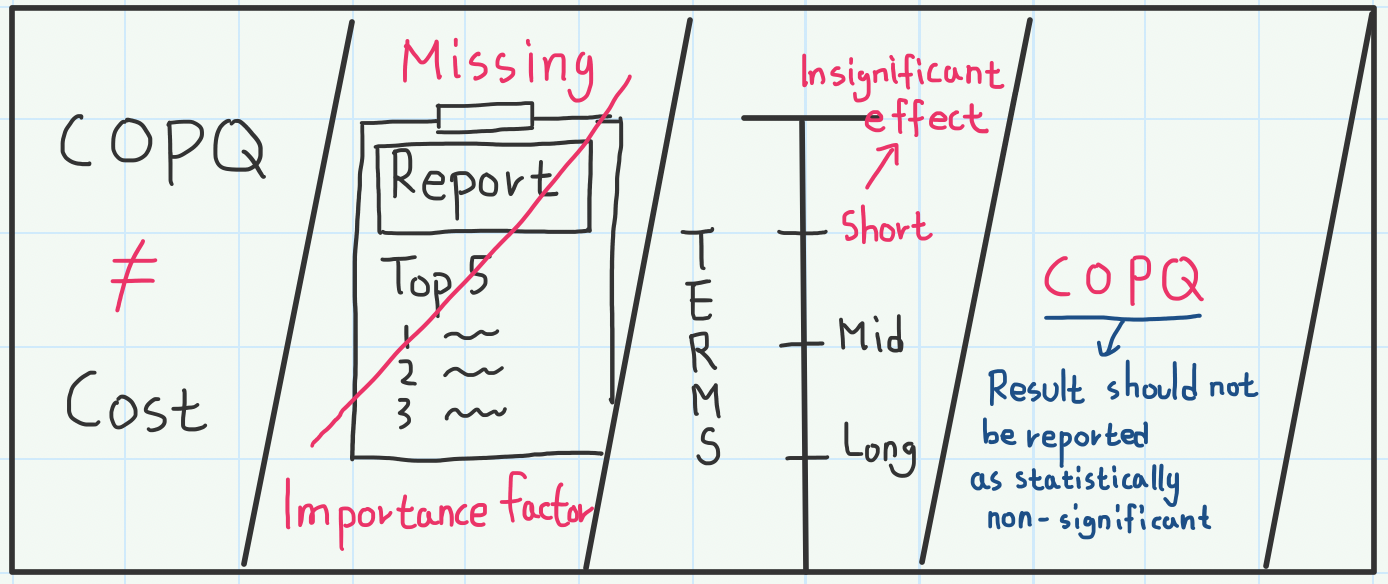 COPQ
≠
Cost
Missing
Report
Top 5
1
2
3
Importance factor
TERMS
Insignificant
effect
Short
Mid
Long
COPQ
Result should not
be reported
as statistically
non-significant